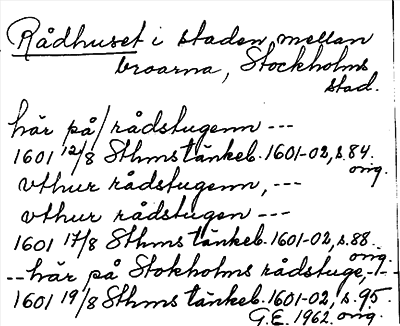 Rådhuset i staden, mellan
broarna, Stockholms
stad.
här på/rådstugenn ---
1601 12/8 Sthms tänkeb. 1601-02, s. 84.
orig.
vthur rådstugenn, ---
vthur rådstugen ---
1601 17/8 Sthms tänkeb. 1601-02, s. 88.
orig.
--- här på Stokholms rådstuge, ---
1601 19/8 Sthms tänkeb. 1601-02, s. 95.
G.E. 1962. orig.